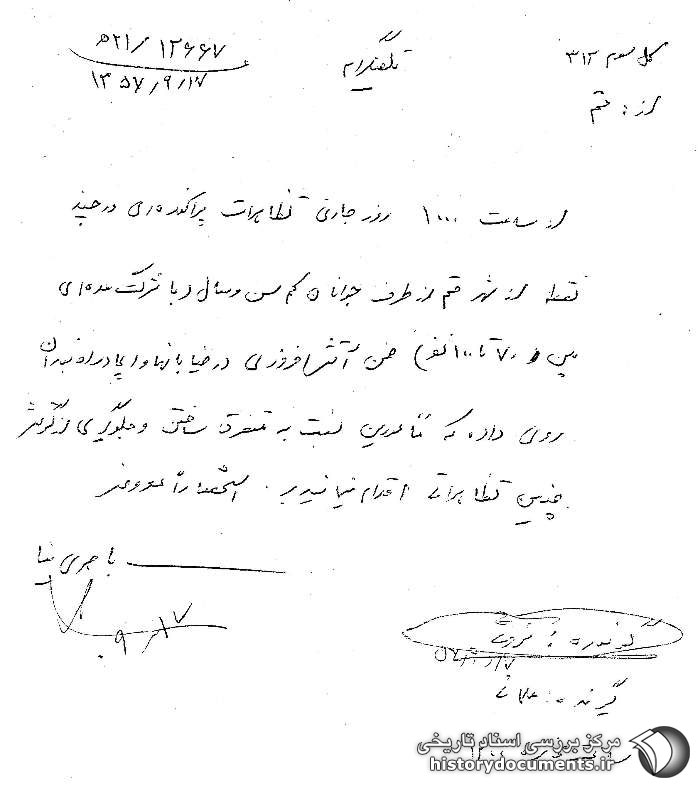 اداره کل سوم ۳۱۲
تلفنگرام
۱۲۶۶۷ / ۲۱ه
۱۳۵۷/۹/۱۷
از : قم
از ساعت ۱۰۰۰ روز جاری تظاهرات پراکنده‌ای در چند
نقطه از شهر قم از طرف جوانان کم سن و سال (با شرکت عده‌ای
بین ۷۰ تا ۱۰۰ نفر) ضمن آتش افروزی در خیابانها و ایجاد راه بندان
روی داده که مامورین نسبت به متفرق ساختن و جلوگیری از گسترش
چنین تظاهراتی اقدام مینمایند. استحضاراً معروض
باجری نیا
۹/۱۷
گوینده :
۵۷/۹/۱۷
گیرنده :
مرکز بررسی اسناد تاریخی
historydocuments.ir